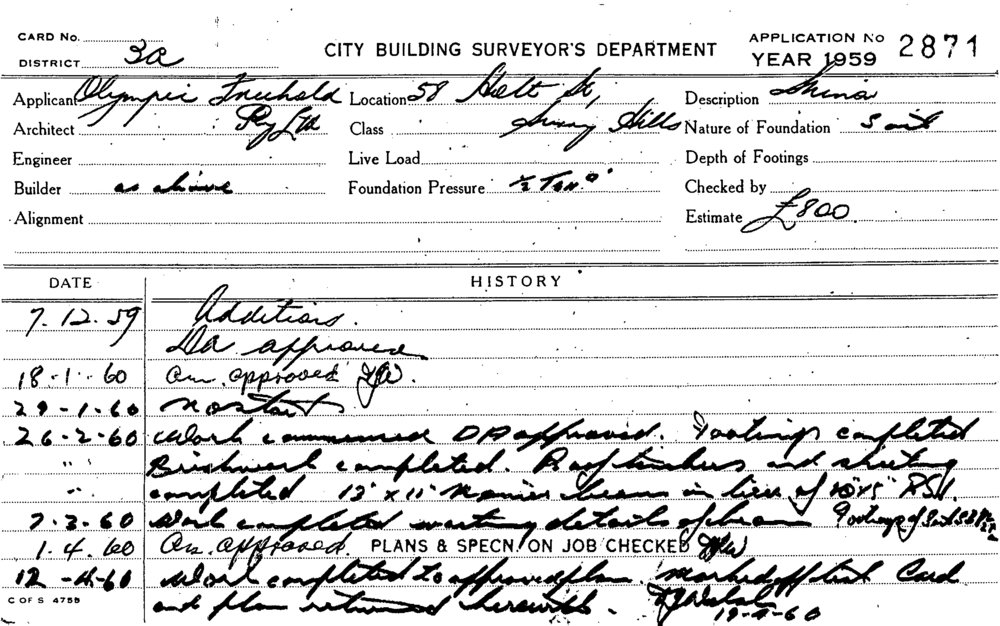 CARD No.
DISTRICT 3a
CITY BUILDING SURVEYOR'S DEPARTMENT
APPLICATION No 2871
YEAR 1959
Applicant Olympic Freehold Location 58 Holt St, Description
Architect Pty Ltd Class Surry Hills Nature of Foundation Soil
Engineer Live Load Depth of Footings
Builder as above Foundation Pressure ½ Ton Checked by
Alignment Estimate £800
DATE HISTORY
7.12.59 Additions.
DA approved
18-1-60 Am. approved
29-1-60 no start
26-2-60 Work commenced DA approved. Footings completed
" Brickwork completed. Roof timbers and sheeting
" completed 12" x 11" beam in lieu of RSJ.
7-3-60 Work completed wanting details of beam
1.4.60 Am. approved. PLANS & SPECN. ON JOB CHECKED
12-4-60 Work completed to approved plan. Marked off list Card
C OF S 4758 and plan returned herewith.
19-4-60